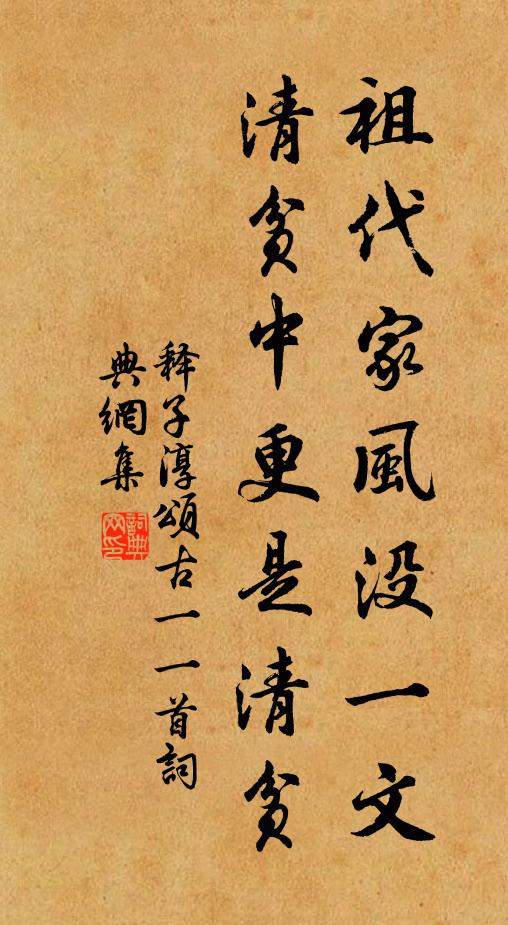 祖代家風没一文
清貧中更是清貧
釋子淳頌古一一首詞
典網集
詞典網印